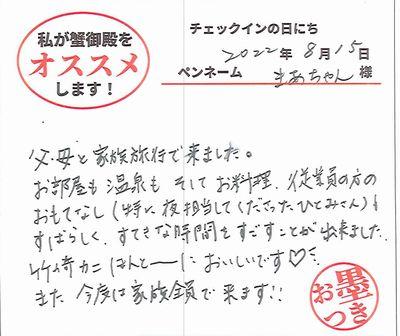 私が蟹御殿を
オススメ
します!
チェックインの日にち
2022年 8月 15日
ペンネーム まあちゃん 様
父・母と家族旅行で来ました。
お部屋も温泉もそしてお料理、従業員の方の
おもてなし(特に夜担当してくださったひとみさん)も
すばらしく、すてきな時間をすごすことが出来ました。
竹崎カニほんとーーにおいしいです♡
また今度は家族全員で来ます!!
お墨
つき